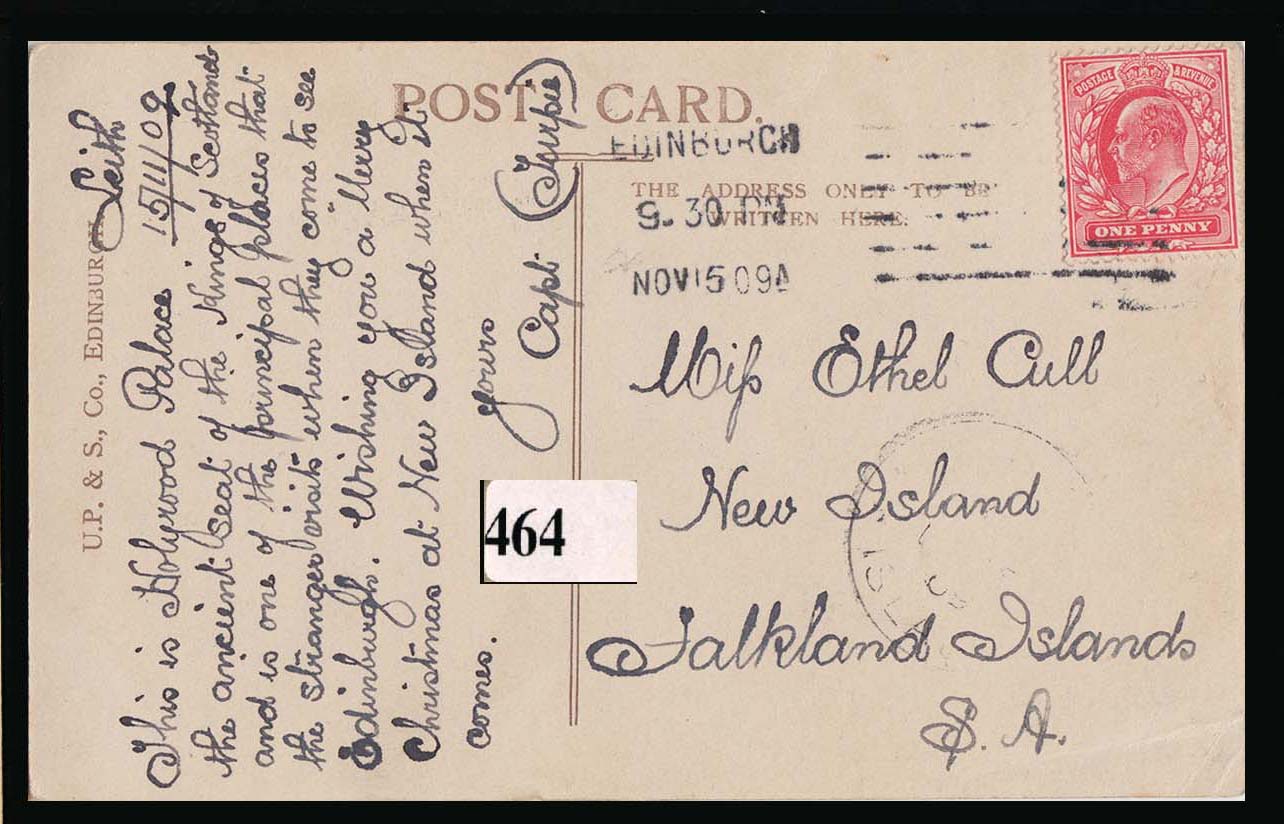 POST CARD.
THE ADDRESS ONLY TO BE
WRITTEN HERE.
EDINBURGH
9. 30 PM
NOV 15 09A
POSTAGE & REVENUE
ONE PENNY
U.P. & S., Co., EDINBURGH
Leith
15/11/09
This is Holyrood Palace
the ancient seat of the Kings of Scotland
and is one of the principal places that
the stranger visits when they come to see
Edinburgh. Wishing you a Merry
Christmas at New Island when it
comes.
yours
Capt
464
Miss Ethel Cull
New Island
Falkland Islands
S. A.